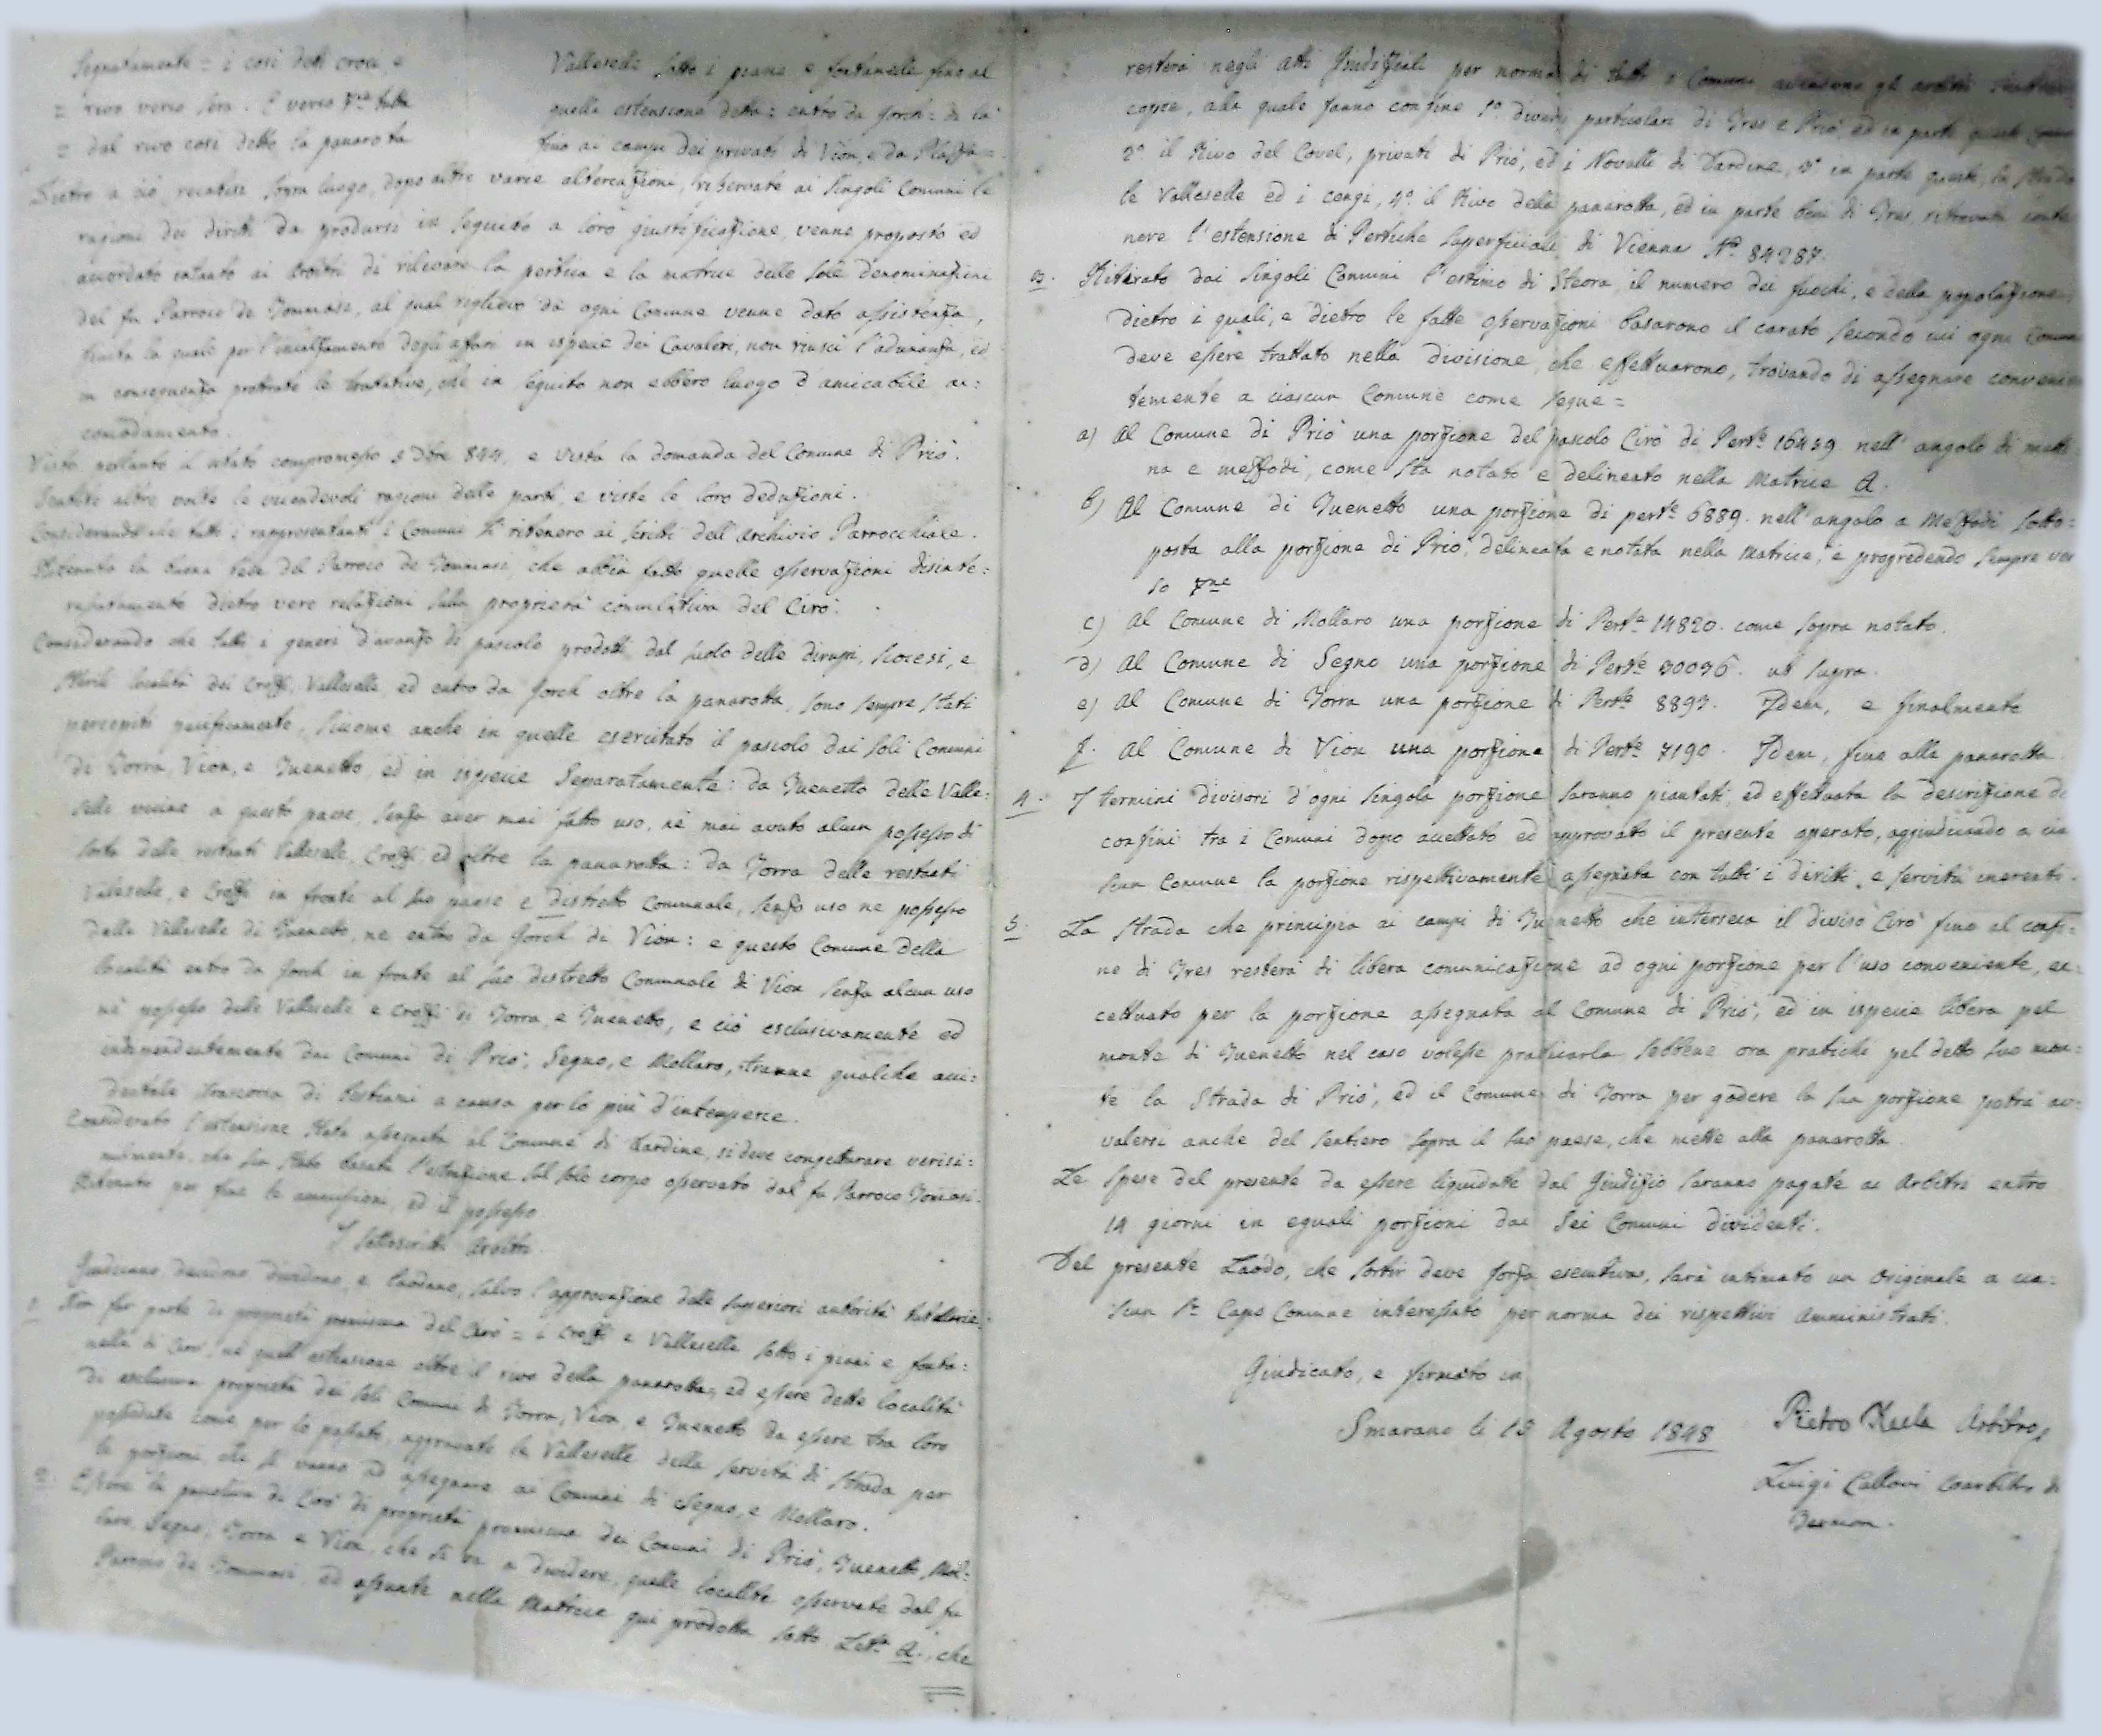 Segnatamente = i così detti croci, e
= rivo verso sera. E verso 7ne tutta
= dal rivo così detto la panarota
Valleselle sotto i piani e fontanelle fino al
quella estensione detta: entro da Gorch: di là
fino ai campi dei privati di Vion, e da
Dietro a ciò, recatisi sopra luogo, dopo altre varie altercazioni, riservate ai singoli Comuni le
ragioni dei diritti da prodursi in seguito a loro giustificazione, venne proposto ed
accordato intanto ai Arbitri di rilevare la pertica e la matrice delle sole denominazioni
del fu Parroco de Tommasi, al qual riglievo da ogni Comune venne dato assistenza,
finita la quale per l'incalzamento degli affari in ispecie dei Cavaleri, non riuscì l'adunanza, ed
in conseguenza protratte le trattative, che in seguito non ebbero luogo d'amicabile ac=
comodamento.
Visto pertanto il citato compromesso 5 Dbre 844, e vista la domanda del Comune di Priò.
Sentite altre volte le vicendevoli ragioni delle parti, e viste le loro deduzioni.
Considerando che tutti i rappresentanti i Comuni si ritenero ai scritti dell'Archivio Parrocchiale.
Ritenuto la buona fede del Parroco de Tommasi, che abbia fatto quelle osservazioni disinte=
ressatamente dietro vere relazioni sulla proprietà cumulativa del Cirò.
Considerando che tutti i generi d'avanzo di pascolo prodotti dal suolo delle dirupi, scocesi, e
sterili località dei Crozi, Valleselle, ed entro da Gorch oltre la panarotta, sono sempre stati
percepiti pacificamente, siccome anche in quelle esercitato il pascolo dai soli Comuni
di Torra, Vion, e Tuenetto, ed in ispecie separatamente: da Tuenetto delle Valle=
selle vicine a questo paese, senza aver mai fatto uso, nè mai avuto alcun possesso di
sorta delle restanti Valleselle, Crozi ed oltre la panarotta: da Torra delle restanti
Valleselle, e Crozi in fronte al suo paese e distretto Comunale, senza uso ne possesso
delle Valleselle di Tuenetto, ne entro da Gorch di Vion: e questo Comune della
località entro da Gorch in fronte al suo distretto Comunale di Vion senza alcun uso
nè possesso delle Valleselle e Crozi di Torra, e Tuenetto, e ciò esclusivamente ed
indipendentemente dai Comuni di Priò, Segno, e Mollaro, tranne qualche acci=
dentale trascorsa di bestiami a causa per lo più d'intemperie.
Considerato l'estensione stata assegnata al Comune di Dardine, si deve congetturare verisi=
milmente, che sia stata basata l'estensione sul solo corpo osservato dal fu Parroco Tomasi.
Ritenute per fine le ammissioni, ed il possesso
I sottoscritti Arbitri
Giudicano decidono dividono, e laodano, salvo l'approvazione delle superiori autorità tutellarie:
1. Non far parte di proprietà promiscua del Cirò = i Crozi e Valleselle sotto i piani e fonta=
nella di Cirò, nè quell'estensione oltre il rivo della panarotta, ed essere dette località
di esclusiva proprietà dei soli Comuni di Torra, Vion, e Tuenetto da essere tra loro
possedute come per lo passato, aggravate le Valleselle della servitù di strada per
le porzioni, che si vanno ad assegnare ai Comuni di Segno, e Mollaro.
2. Essere la pastura di Cirò di proprietà promiscua dei Comuni di Priò, Tuenetto, Mol=
laro, Segno, Torra e Vion, che si va a dividere, quelle località osservate dal fu
Parroco de Tommasi, ed assunte nella Matrice qui prodotta sotto Letta A., che
resterà negli Atti Giudiziali per norma di tutti i Comuni
copie, alla quale fanno confine 1o. diversi particolari di Tres e Priò ed in parte questi
2o. il Rivo del Covel, privati di Priò, ed i Novalli di Dardine, 3o in parte questi, la strada
le Valleselle ed i cengi, 4o. il Rivo della panarotta, ed in parte beni di Tres, ritrovata conte
nere l'estensione di Pertiche superficiali di Vienna No. 84287.
3. Ritirato dai singoli Comuni l'estimo di Steora, il numero dei fuochi, e della popolazione,
dietro i quali, e dietro le fatte osservazioni basarono il carato secondo cui ogni Comune
deve essere trattato nella divisione, che effettuarono, trovando di assegnare convenien
temente a ciascun Comune come segue =
a) Al Comune di Priò una porzione del pascolo Cirò di Perte 16459. nell'angolo di matti=
na e mezzodì, come sta notato e delineato nella Matrice A.
b) Al Comune di Tuenetto una porzione di perte 6889. nell'angolo a Mezzodì sotto=
posta alla porzione di Priò, delineata e notata nella Matrice, e progredendo sempre ver
so 7ne
c) Al Comune di Mollaro una porzione di Perte 14820. come sopra notato.
d) Al Comune di Segno una porzione di Perte 30036. ut supra.
e) Al Comune di Torra una porzione di Perte 8893. Idem, e finalmente
f. Al Comune di Vion una porzione di Perte 7190. Idem, fino alla panarotta.
4. I termini divisori d'ogni singola porzione saranno piantati, ed effettuata la descrizione di
confini tra i Comuni dopo accettato ed approvato il presente operato, aggiudicando a cia
scun Comune la porzione rispettivamente assegnata con tutti i diritti, e servitù inerenti.
5. La strada che principia ai campi di Tuenetto che interseca il diviso Cirò fino al confi=
ne di Tres resterà di libera comunicazione ad ogni porzione per l'uso conveniente, ec=
cettuato per la porzione assegnata al Comune di Priò, ed in ispecie libera pel
monte di Tuenetto nel caso volesse praticarla, sebbene ora pratichi pel detto suo mon=
te la Strada di Priò, ed il Comune di Torra per godere la sua porzione potrà av=
valersi anche del sentiero sopra il suo paese, che mette alla panarotta.
Le spese del presente da essere liquidate dal Giudizio saranno pagate ai Arbitri entro
14 giorni in eguali porzioni dai sei Comuni dividenti.
Del presente Laodo, che sortir deve forza esecutiva, sarà intimato un Originale a cia=
scun Sr. Capo Comune interessato per norma dei rispettivi Amministrati.
Giudicato, e firmato in
Smarano li 13 Agosto 1848
Pietro Arbitro
Luigi Callovi Coarbitro di